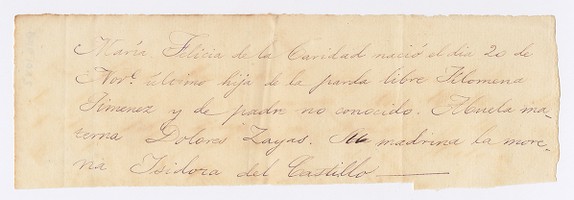 María Felicia de la Caridad nació el dia 20 de
Novᵉ. último hija de la parda libre Filomena
Jimenez y de padre no conocido. Abuela ma-
terna Dolores Zayas. madrina la more-
na Isidora del Castillo